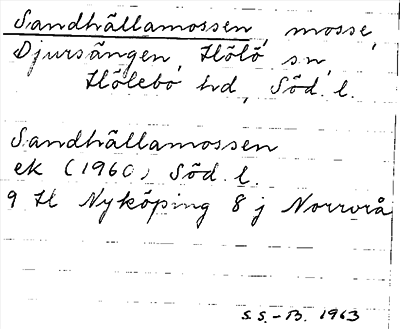 Sandhällamossen, mosse,
Djursängen, Hölö sn,
Hölebo hd, Söd. l.
Sandhällamossen
ek (1960) Söd. l.
9 H Nyköping 8 j Norrvrå
S. S.-B. 1963